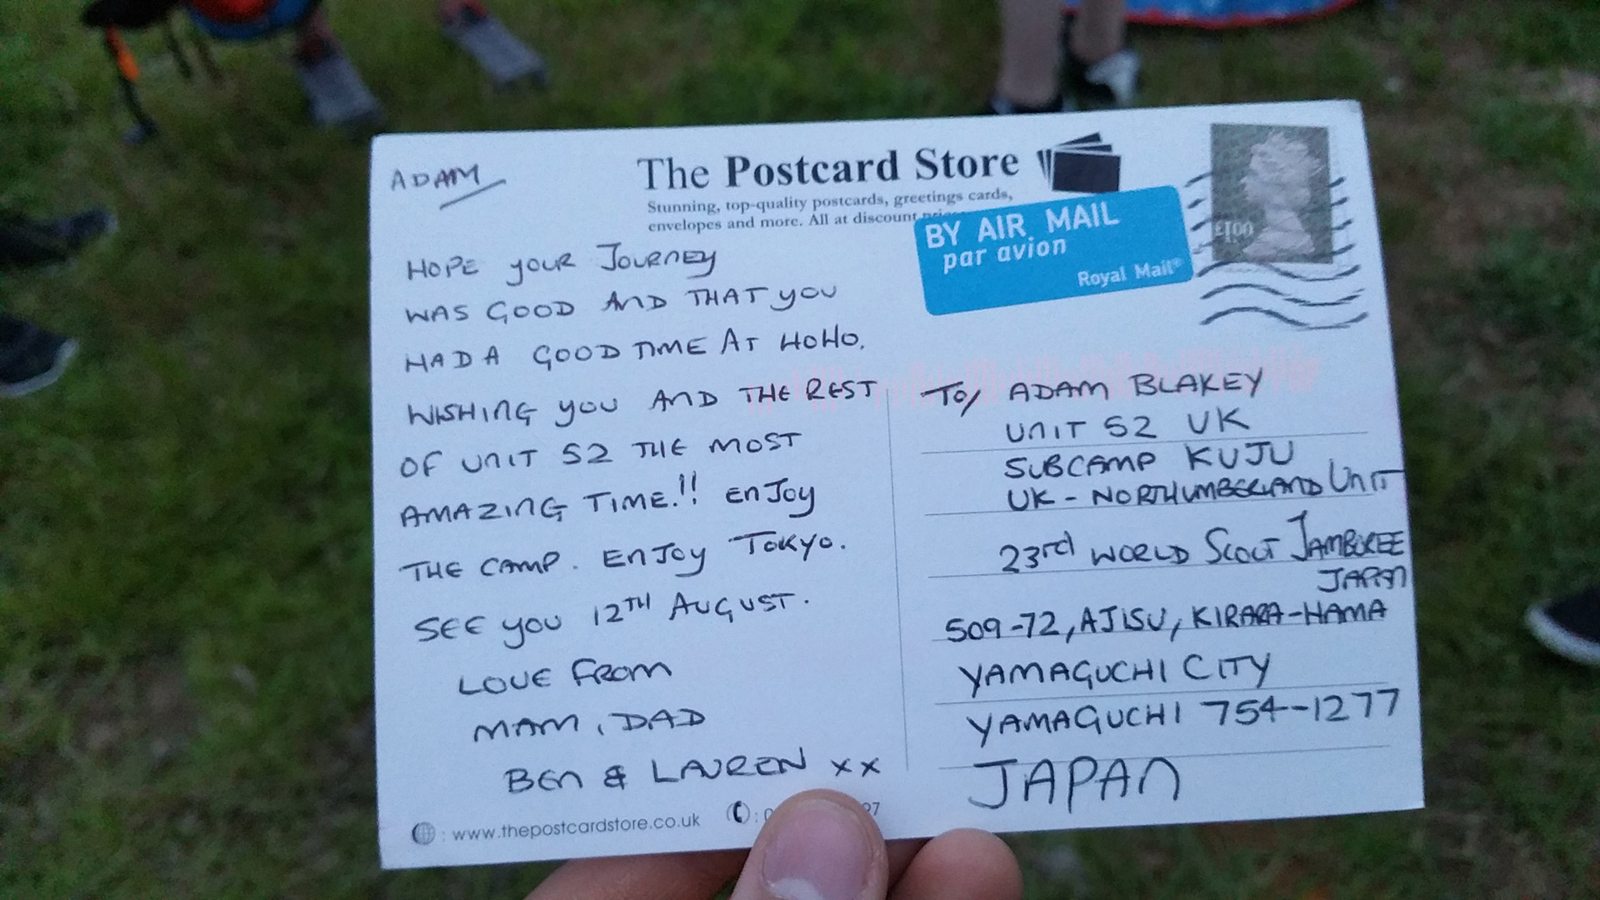 ADAM
The Postcard Store
Stunning, top-quality postcards, greetings cards,
envelopes and more. All at discount
BY AIR MAIL
par avion
Royal Mail®
£1.00
HOPE YOUR JOURNEY
WAS GOOD AND THAT YOU
HAD A GOOD TIME AT HOHO.
WISHING YOU AND THE REST
OF UNIT 52 THE MOST
AMAZING TIME.!! ENJOY
THE CAMP. ENJOY TOKYO.
SEE YOU 12TH AUGUST.
LOVE FROM
MAM, DAD
BEN & LAUREN xx
TO/ ADAM BLAKEY
UNIT 52 UK
SUBCAMP KUJU
UK - NORTHUMBERLAND UNIT
23rd WORLD SCOUT JAMBOREE
JAPAN
509-72, AJISU, KIRARA-HAMA
YAMAGUCHI CITY
YAMAGUCHI 754-1277
JAPAN
: www.thepostcardstore.co.uk